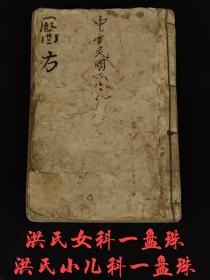 醫方
中華民國
洪氏女科一盘珠
洪氏小儿科一盘珠